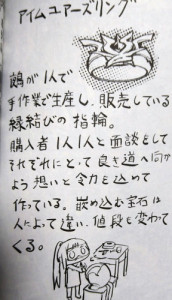 アイムユアーズリング
鵡が1人で
手作業で生産し、販売している
縁結びの指輪。
購入者1人1人と面談をして
それぞれにとって良き道へ向か
よう想いと念力を込めて
作っている。嵌め込む宝石は
人によって違い、値段も変わって
くる。